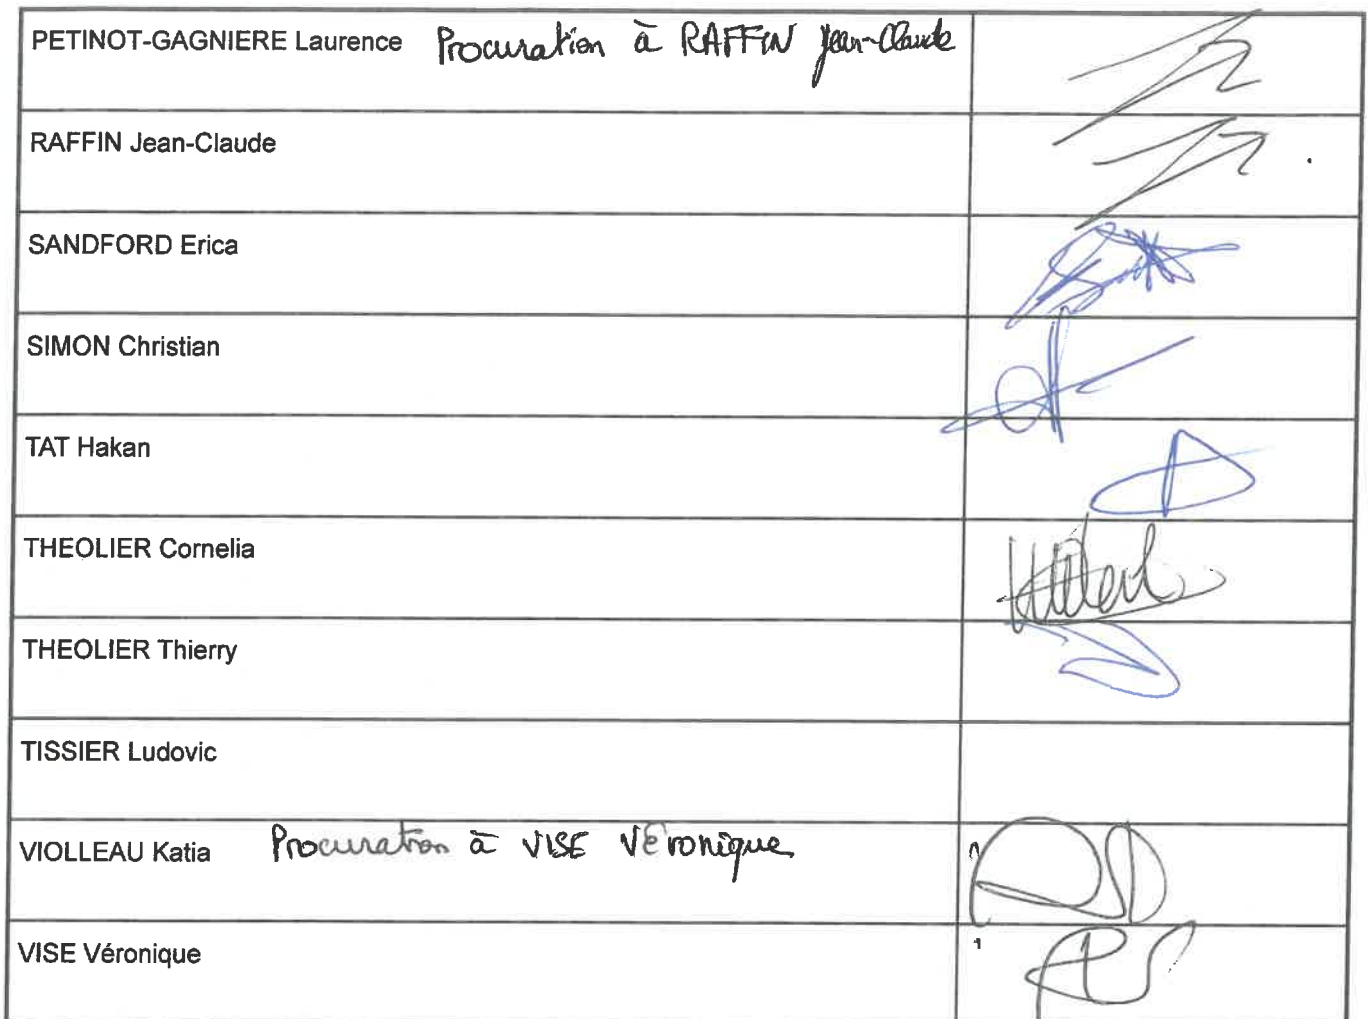 PETINOT-GAGNIERE Laurence Procuration à RAFFIN Jean-Claude
RAFFIN Jean-Claude
SANDFORD Erica
SIMON Christian
TAT Hakan
THEOLIER Cornelia
THEOLIER Thierry
TISSIER Ludovic
VIOLLEAU Katia Procuration à VISE Véronique
VISE Véronique